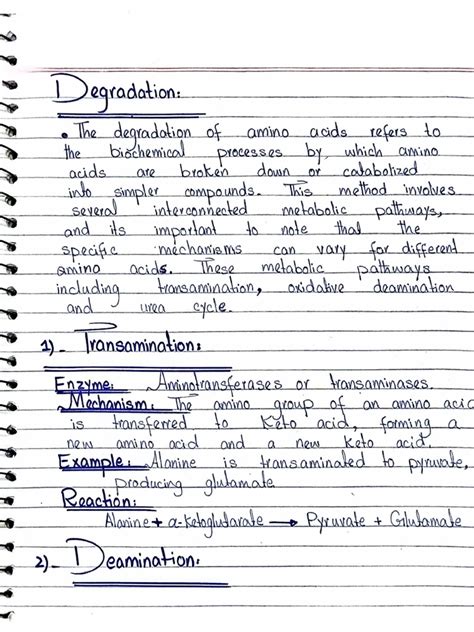 Degradation:
• The degradation of amino acids refers to
the biochemical processes by which amino
acids are broken down or catabolized
into simpler compounds. This method involves
several interconnected metabolic pathways,
and its important to note that the
specific mechanisms can vary for different
amino acids. These metabolic pathways
including transamination, oxidative deamination
and urea cycle.
1)- Transamination:
Enzyme: Aminotransferases or transaminases.
Mechanism: The amino group of an amino acid
is transferred to Keto acid, forming a
new amino acid and a new Keto acid.
Example: Alanine is transaminated to pyruvate,
producing glutamate
Reaction:
Alanine + α-Ketoglutarate → Pyruvate + Glutamate
2)- Deamination: